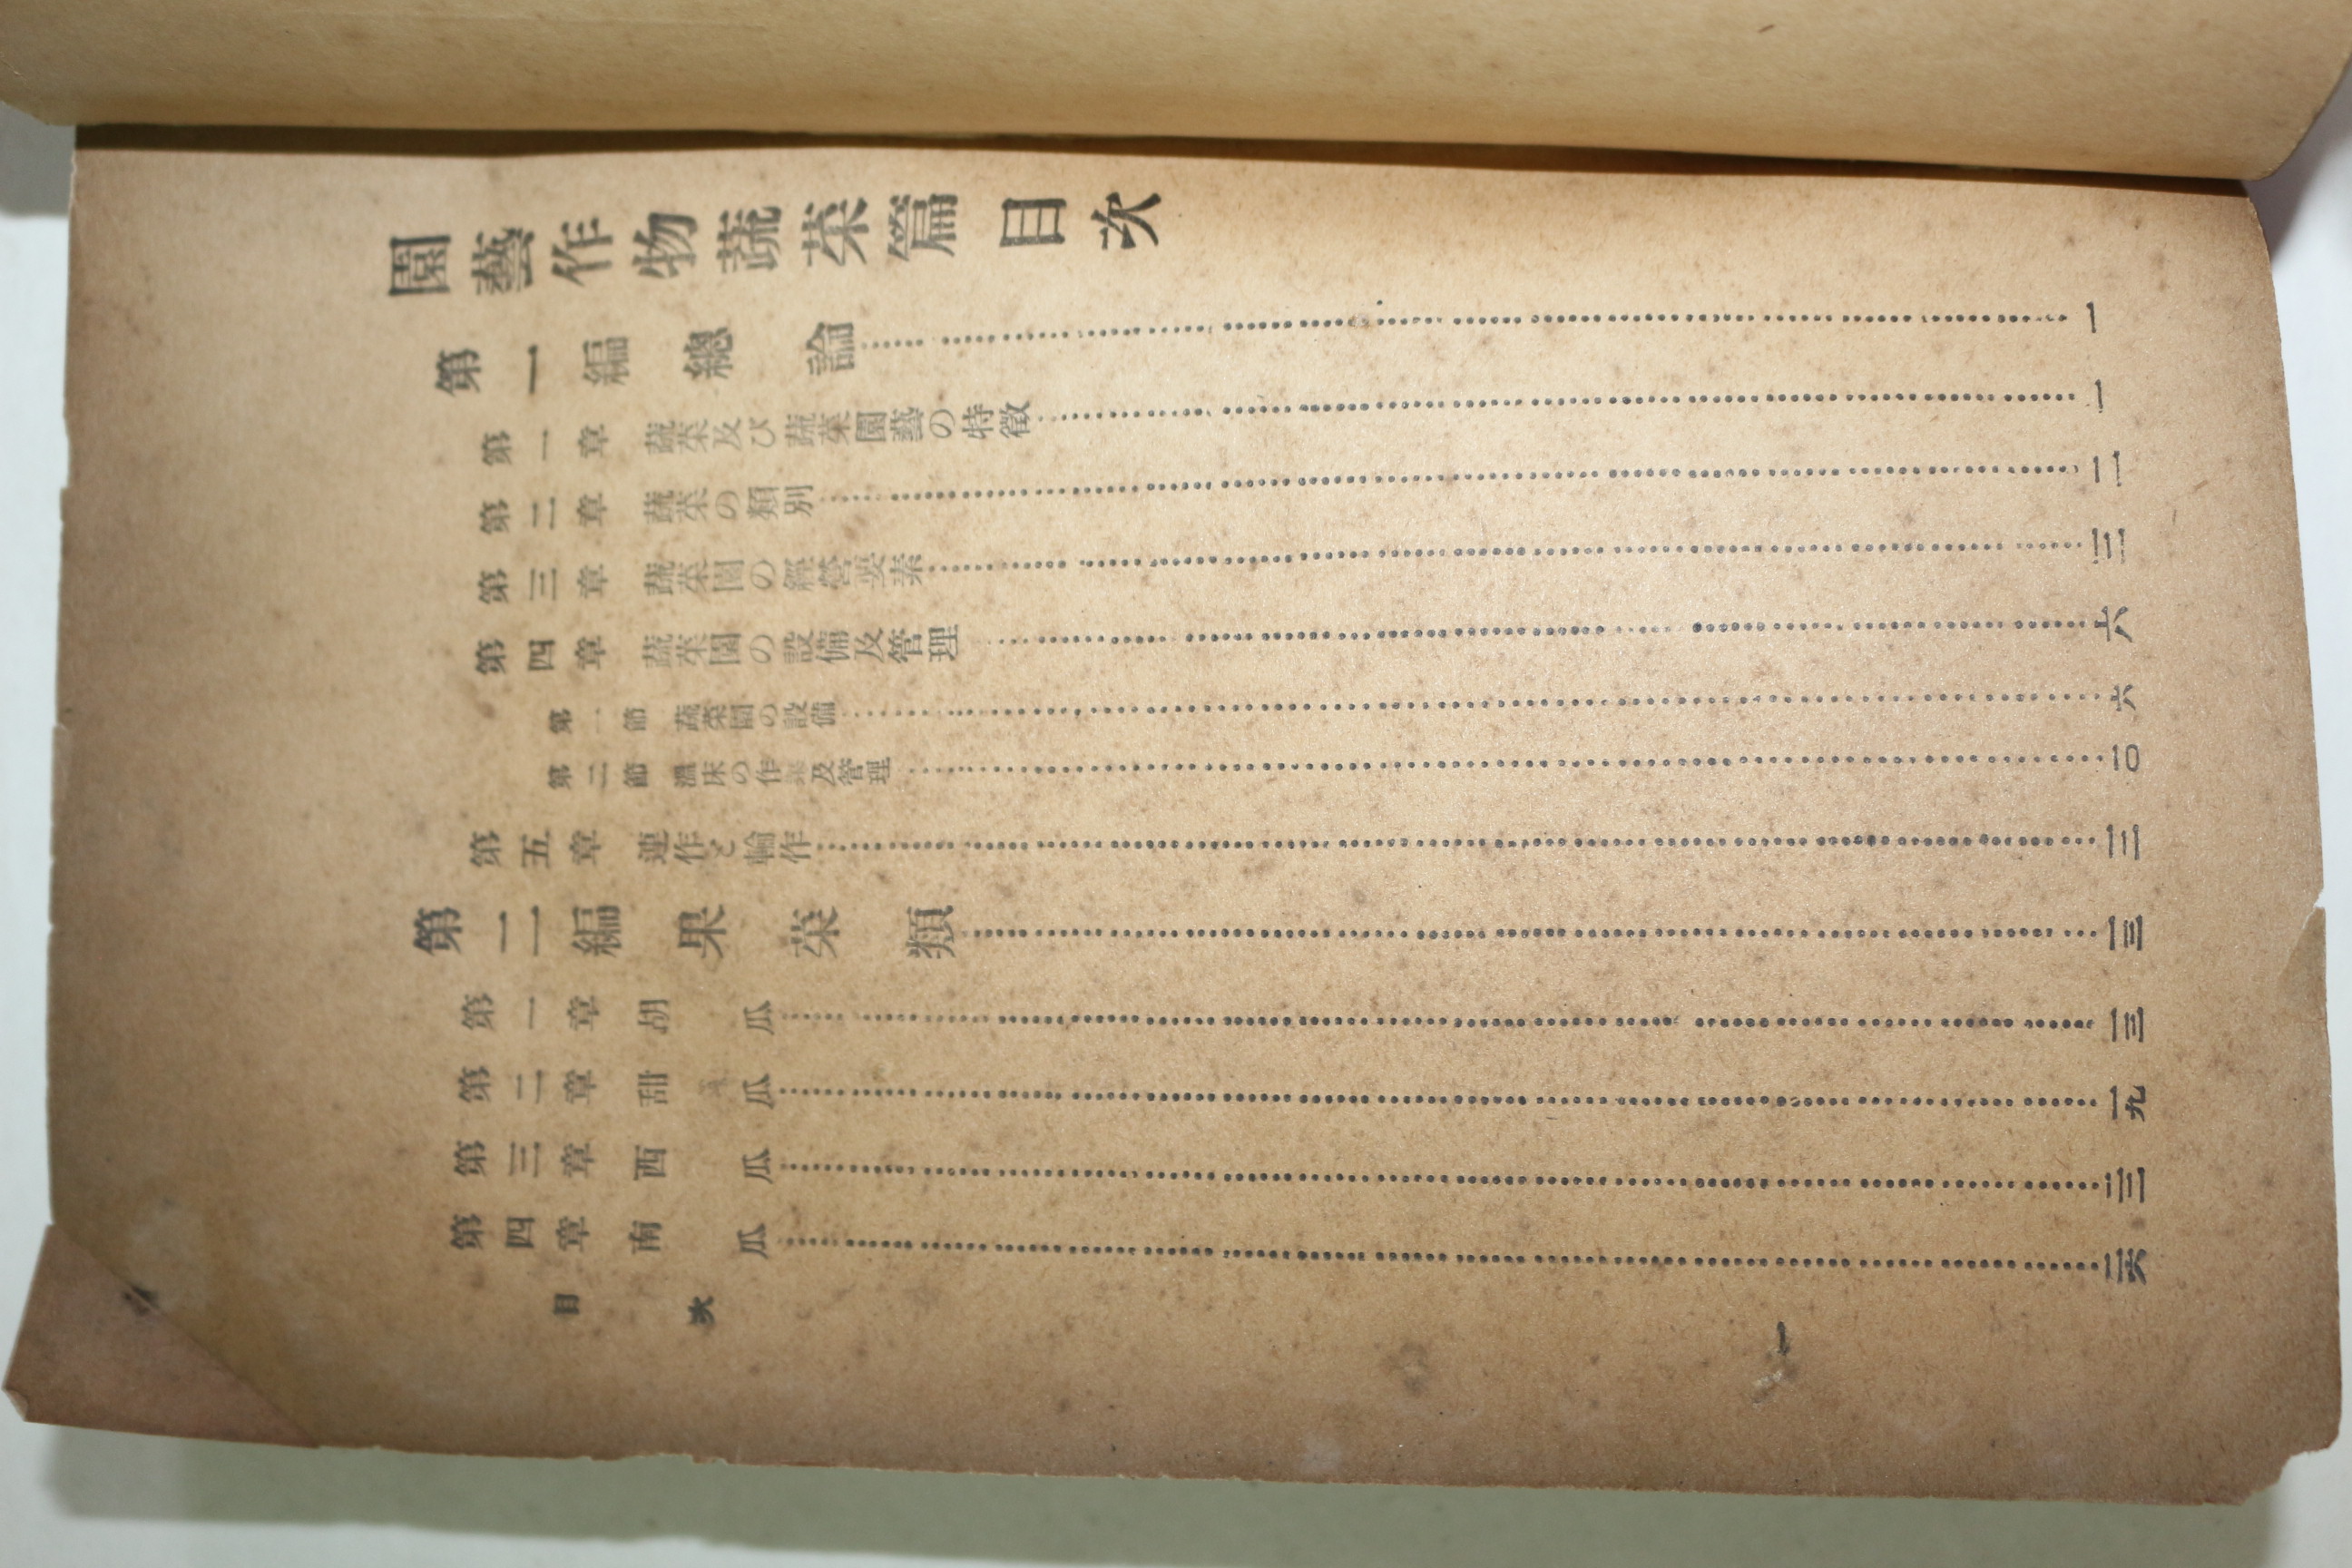 園藝作物蔬菜篇 目次
第一編 總論……一
第一章 蔬菜及び蔬菜園藝の特徵……一
第二章 蔬菜の類別……二
第三章 蔬菜園の經營要素……三
第四章 蔬菜園の設備及管理……六
第一節 蔬菜園の設備……六
第二節 溫床の作製及管理……一〇
第五章 連作と輪作……一二
第二編 果菜類……一三
第一章 胡瓜……一三
第二章 甜瓜……一九
第三章 西瓜……二二
第四章 南瓜……二六
目次
一